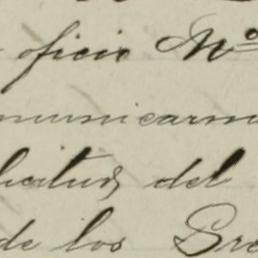 oficio Nº
municarm
licitud del
de los Sre